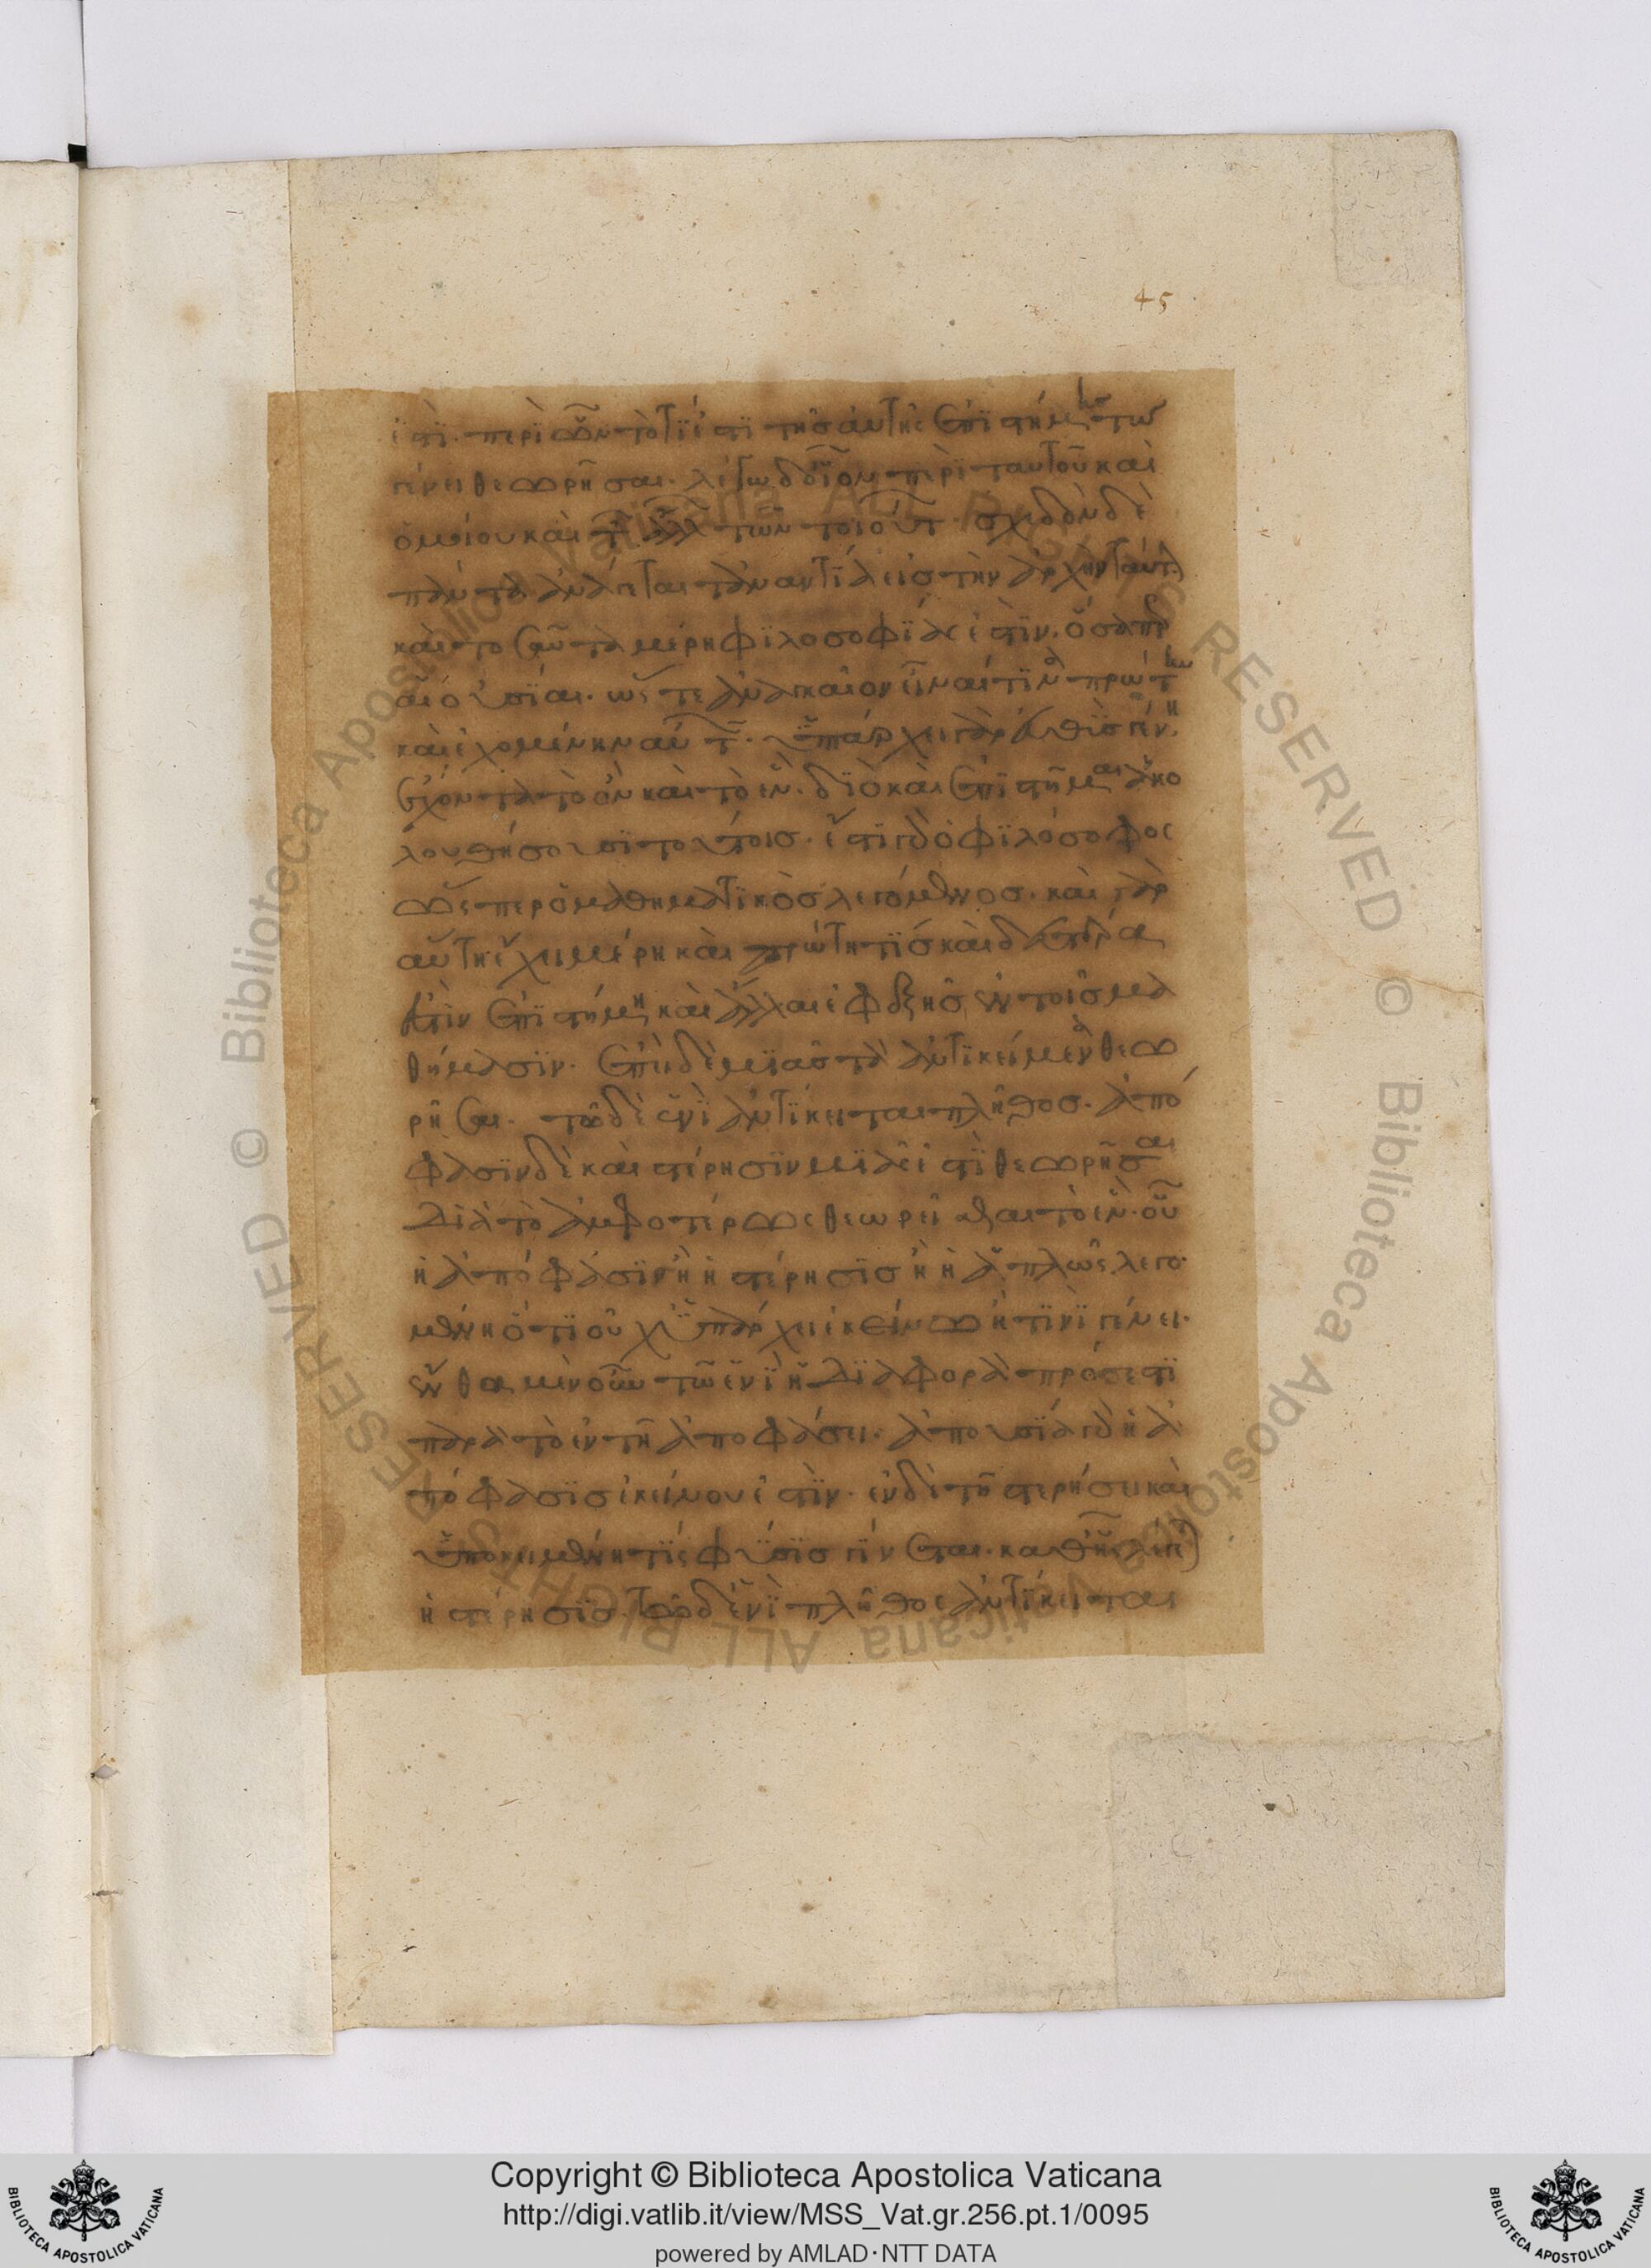 ἐστι· περὶ ὧν τὸ τί ἐστι τῆς αὐτῆς ἐπιστήμης τῶ
γένει θεωρῆσαι· λέγω δ οἷον περὶ ταυτοῦ καὶ
ὁμοίου καὶ τῶν ἄλλων τῶν τοιούτων· σχεδὸν δὲ
πάντα ἀνάγεται τἀναντία εἰς τὴν ἀρχὴν ταύτην
καὶ τοσαῦτα μέρη φιλοσοφίας ἐστὶν· ὅσαπερ
αἱ οὐσίαι· ὥστε ἀναγκαῖον εἶναί τινα πρώτην
καὶ ἐχομένην αὐτῶν· ὑπάρχει γὰρ εὐθὺς γένη
ἔχοντα τὸ ὂν καὶ τὸ ἕν· διὸ καὶ ἐπιστῆμαι ἀκο
λουθήσουσι τούτοις· ἔστι γὰρ ὁ φιλόσοφος
ὥσπερ ὁ μαθηματικὸς λεγόμενος· καὶ γὰρ
αὕτη ἔχει μέρη καὶ πρώτη τις καὶ δευτέρα
ἐστὶν ἐπιστήμη καὶ ἄλλαι ἐφεξῆς ἐν τοῖς μα
θήμασιν· ἐπεὶ δὲ μιᾶς τὰ ἀντικείμενα θεω
ρῆσαι· τῶ δὲ ἑνὶ ἀντίκειται πλῆθος· ἀπό
φασιν δὲ καὶ στέρησιν μιᾶς ἐστὶ θεωρῆσαι
διὰ τὸ ἀμφοτέρως θεωρεῖσθαι τὸ ἕν· οὗ
ἡ ἀπόφασιν ἢ ἡ στέρησις ἢ ἡ ἁπλῶς λεγο
μένη ὅτι οὐχ ὑπάρχει ἐκείνω ἢ τινὶ γένει·
ἔνθα μὲν οὖν τῶ ἑνὶ ἡ διαφορὰ πρόσεστι
παρὰ τὸ ἐν τῆ ἀποφάσει· ἀπουσία γὰρ ἡ ἀ
πόφασις ἐκείνου ἐστὶν· ἐν δὲ τῆ στερήσει καὶ
ὑποκειμένη τίς φύσις γίνεται· καθ ἧς λέγεται
ἡ στέρησις· τῶ δ ἑνὶ πλῆθος ἀντίκειται
45
Copyright © Biblioteca Apostolica Vaticana
http://digi.vatlib.it/view/MSS_Vat.gr.256.pt.1/0095
powered by AMLAD·NTT DATA
BIBLIOTECA APOSTOLICA VATICANA
BIBLIOTECA APOSTOLICA VATICANA
© Biblioteca Apostolica Vaticana ALL RIGHTS RESERVED
© Biblioteca Apostolica Vaticana ALL RIGHTS RESERVED